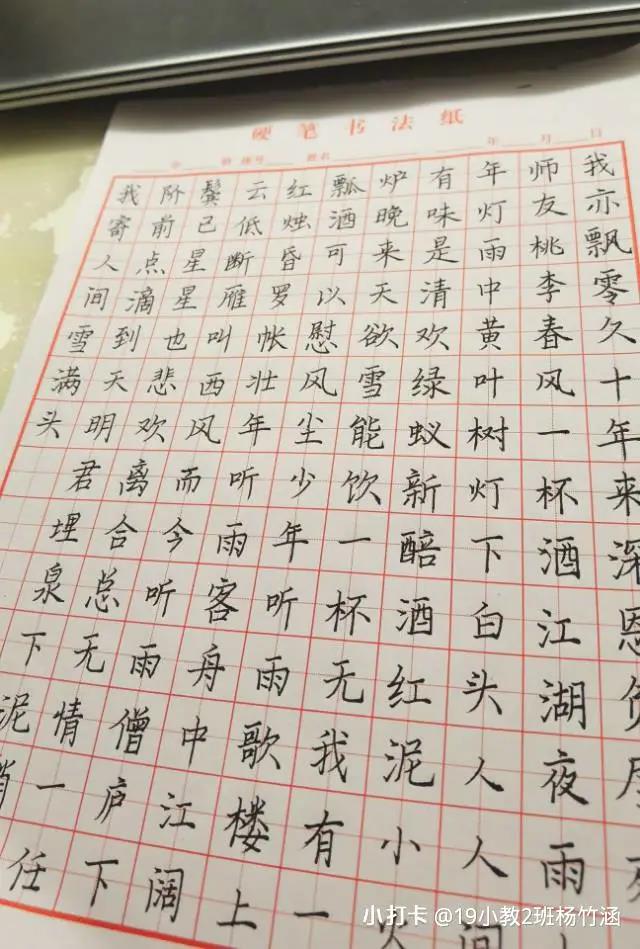 硬笔书法纸
年 月 日
姓名
我亦飘零久十年来深恩负尽死
师友桃李春风一杯酒江湖夜雨
年灯雨中黄叶树灯下白头人人间
有味是清欢绿蚁新醅酒红泥小火
炉晚来天欲雪能饮一杯无我有一
瓢酒可以慰风尘少年听雨歌楼上
红烛昏罗帐壮年听雨客舟中江阔
云低断雁叫西风而今听雨僧庐下
鬓已星星也悲欢离合总无情一任
阶前点滴到天明君埋泉下泥销
我寄人间雪满头
小打卡 @19小教2班杨竹涵